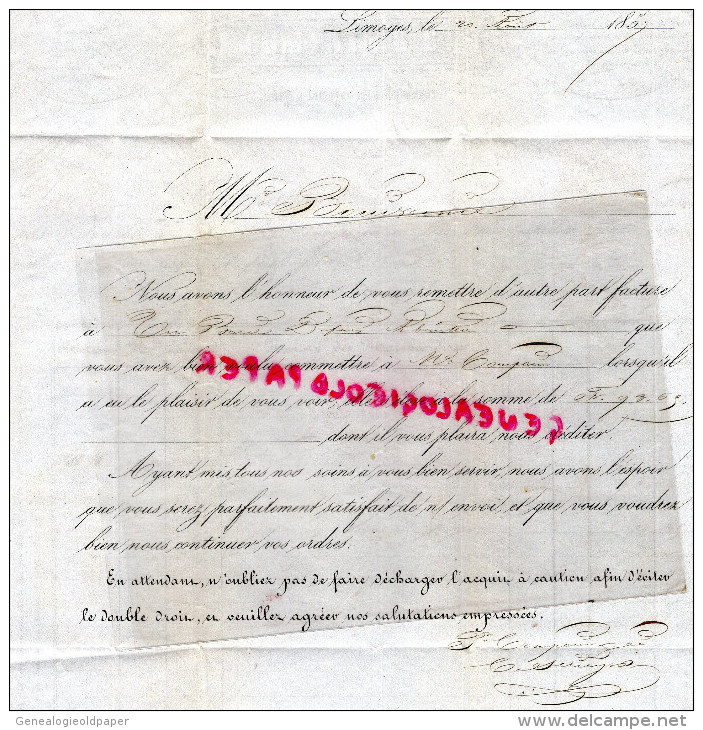 Limoges, le 20 Août 1857
Mr
Nous avons l'honneur de vous remettre d'autre part facture
à que
vous avez bien voulu commettre à Mr lorsqu'il
a eu le plaisir de vous voir, elle s'élève à la somme de
dont il vous plaira nous créditer.
Ayant mis tous nos soins à vous bien servir, nous avons l'espoir
que vous serez parfaitement satisfait de n/ envoi, et que vous voudrez
bien nous continuer vos ordres.
En attendant, n'oubliez pas de faire décharger l'acquit à caution afin d'éviter
le double droit, et veuillez agréer nos salutations empressées.
GENEALOGIEOLDPAPER
Genealogieoldpaper
delcampe.net